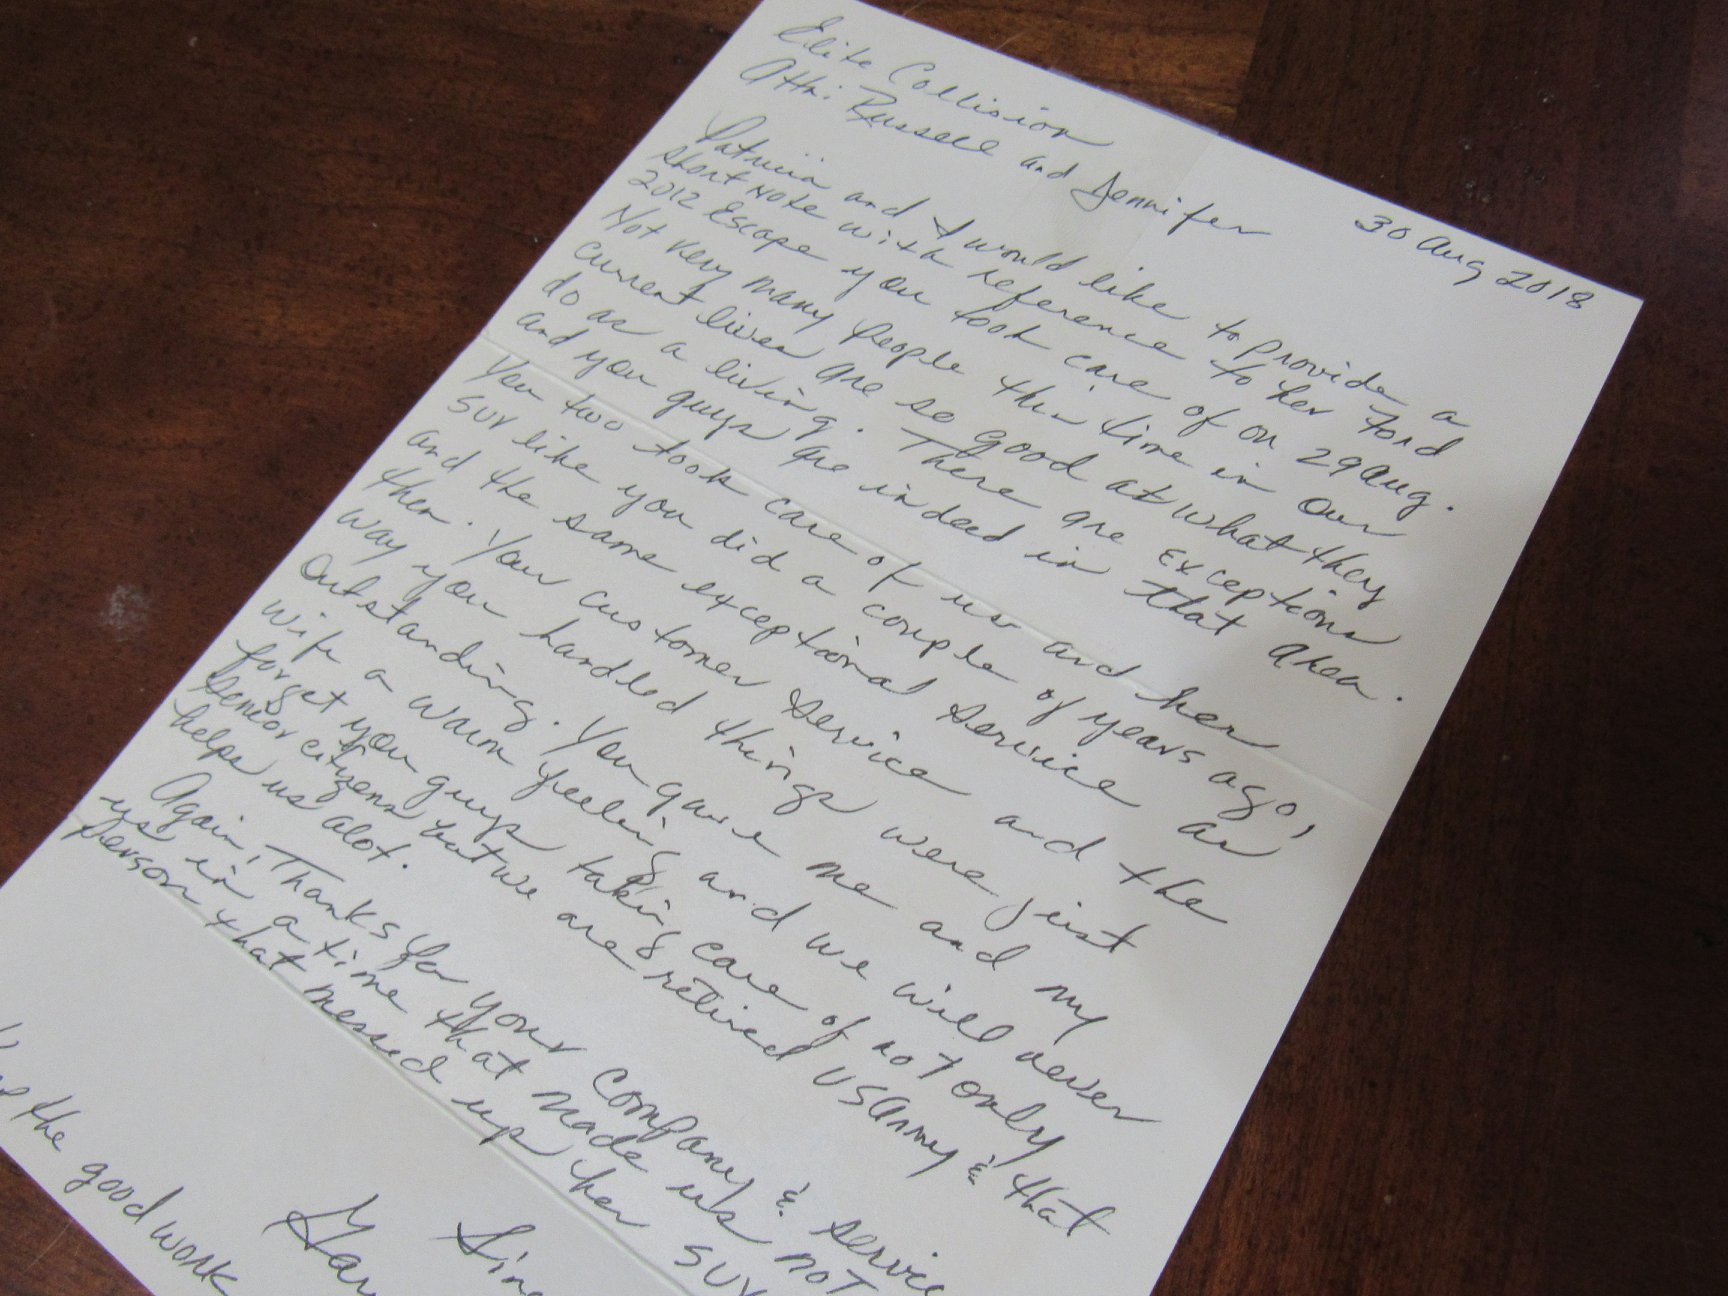 Elite Collision
Attn: Russell and Jennifer
30 Aug 2018
Patricia and I would like to provide a
short note with reference to her Ford
2012 Escape you took care of on 29 Aug.
Not very many people this time in our
current lives are so good at what they
do as a living. There are exceptions
and you guys are indeed in that area.
You two took care of us and her
SUV like you did a couple of years ago,
and the same exceptional service as
then. Your customer service and the
way you handled things were just
outstanding. You gave me and my
wife a warm feeling and we will never
forget you guys taking care of not only
senior citizens but we are retired US Army & that
helps us alot.
Again, Thanks for your company & service
us in a time that made us not
person that messed up her SUV
the good work